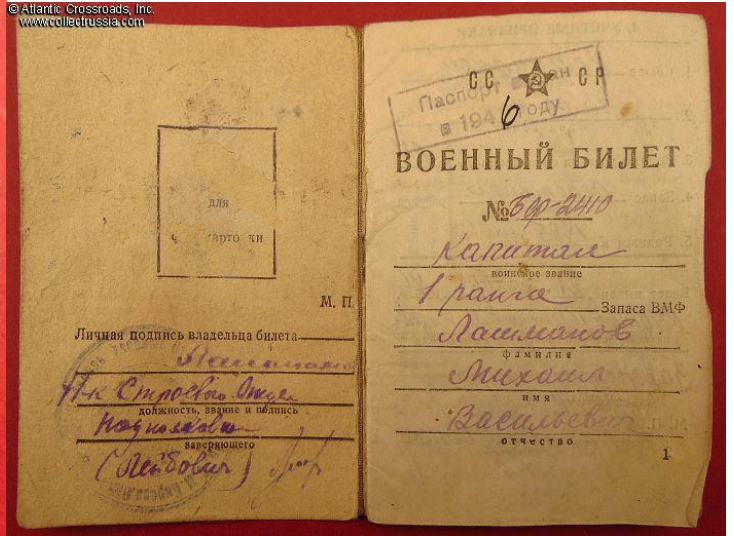 © Atlantic Crossroads, Inc.
www.collectrussia.com
для
М. П.
Личная подпись владельца билета
Н-к Строевого Отдел
должность, звание и подпись
Подполковн
заверяющего
(Лейбович)
СС СР
Паспорт в дан
в 1946 году
ВОЕННЫЙ БИЛЕТ
№ БФ-2410
Капитан
воинское звание
1 ранга Запаса ВМФ
Лашманов
фамилия
Михаил
имя
Васильевич
отчество
1